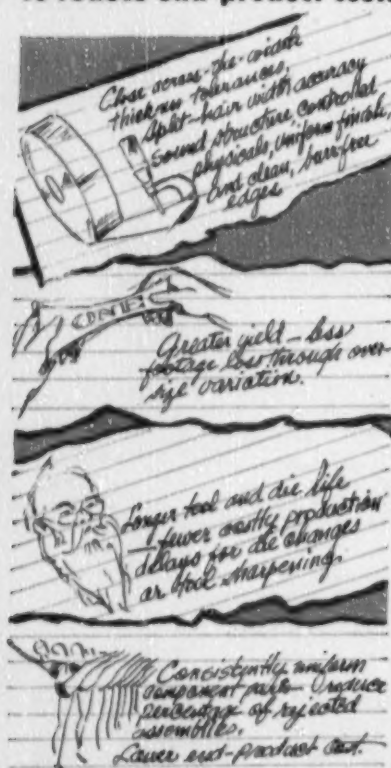 to reduce end-product cost
Close across-the-width
thickness tolerances,
split-hair width accuracy
sound structure, controlled
physicals, uniform finish,
and clean, burr-free
edges
Greater yield — less
footage loss through over-
size variation.
Longer tool and die life
— fewer costly production
delays for die changes
or tool sharpening.
Consistently uniform
component parts — reduce
percentage of rejected
assemblies.
Lower end-product cost.